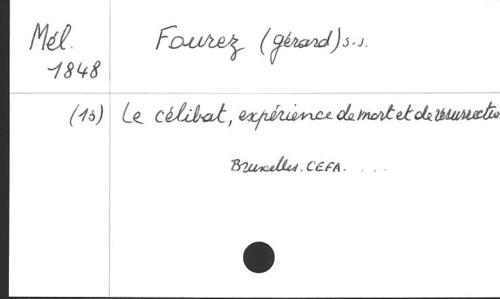 Mél. Fourez (gérard) s.j.
1848
(13) Le célibat, expérience de mort et de résurrection
Bruxelles. CEFA. . . .